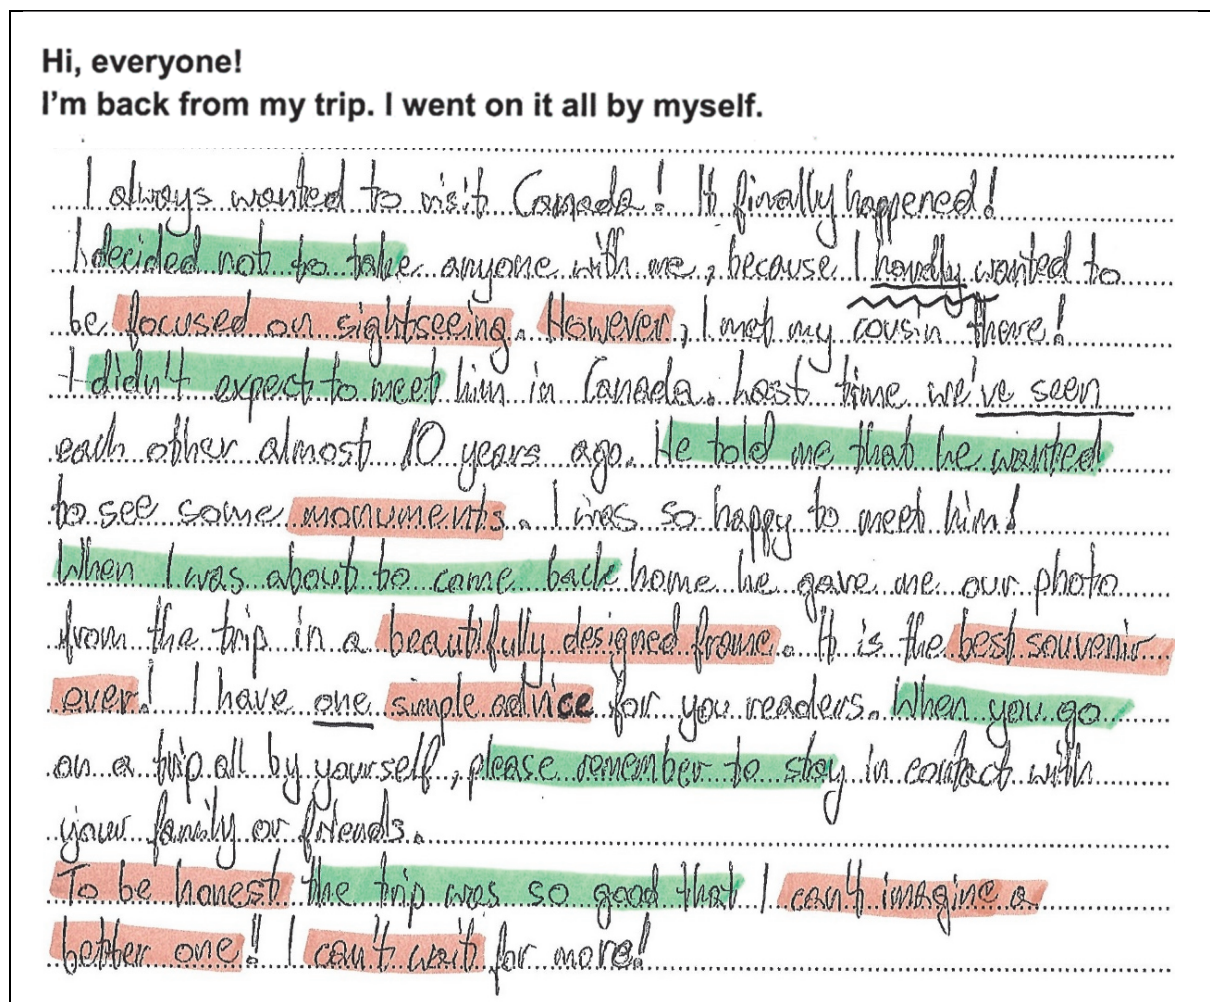 Hi, everyone!
I'm back from my trip. I went on it all by myself.
I always wanted to visit Canada! It finally happened!
I decided not to take anyone with me, because I hardly wanted to
be focused on sightseeing. However, I met my cousin there!
I didn't expect to meet him in Canada. Last time we've seen
each other almost 10 years ago. He told me that he wanted
to see some monuments. I was so happy to meet him!
When I was about to come back home he gave me our photo
from the trip in a beautifully designed frame. It is the best souvenir
ever! I have one simple advice for you readers. When you go
on a trip all by yourself, please remember to stay in contact with
your family or friends.
To be honest the trip was so good that I can't imagine a
better one! I can't wait for more!